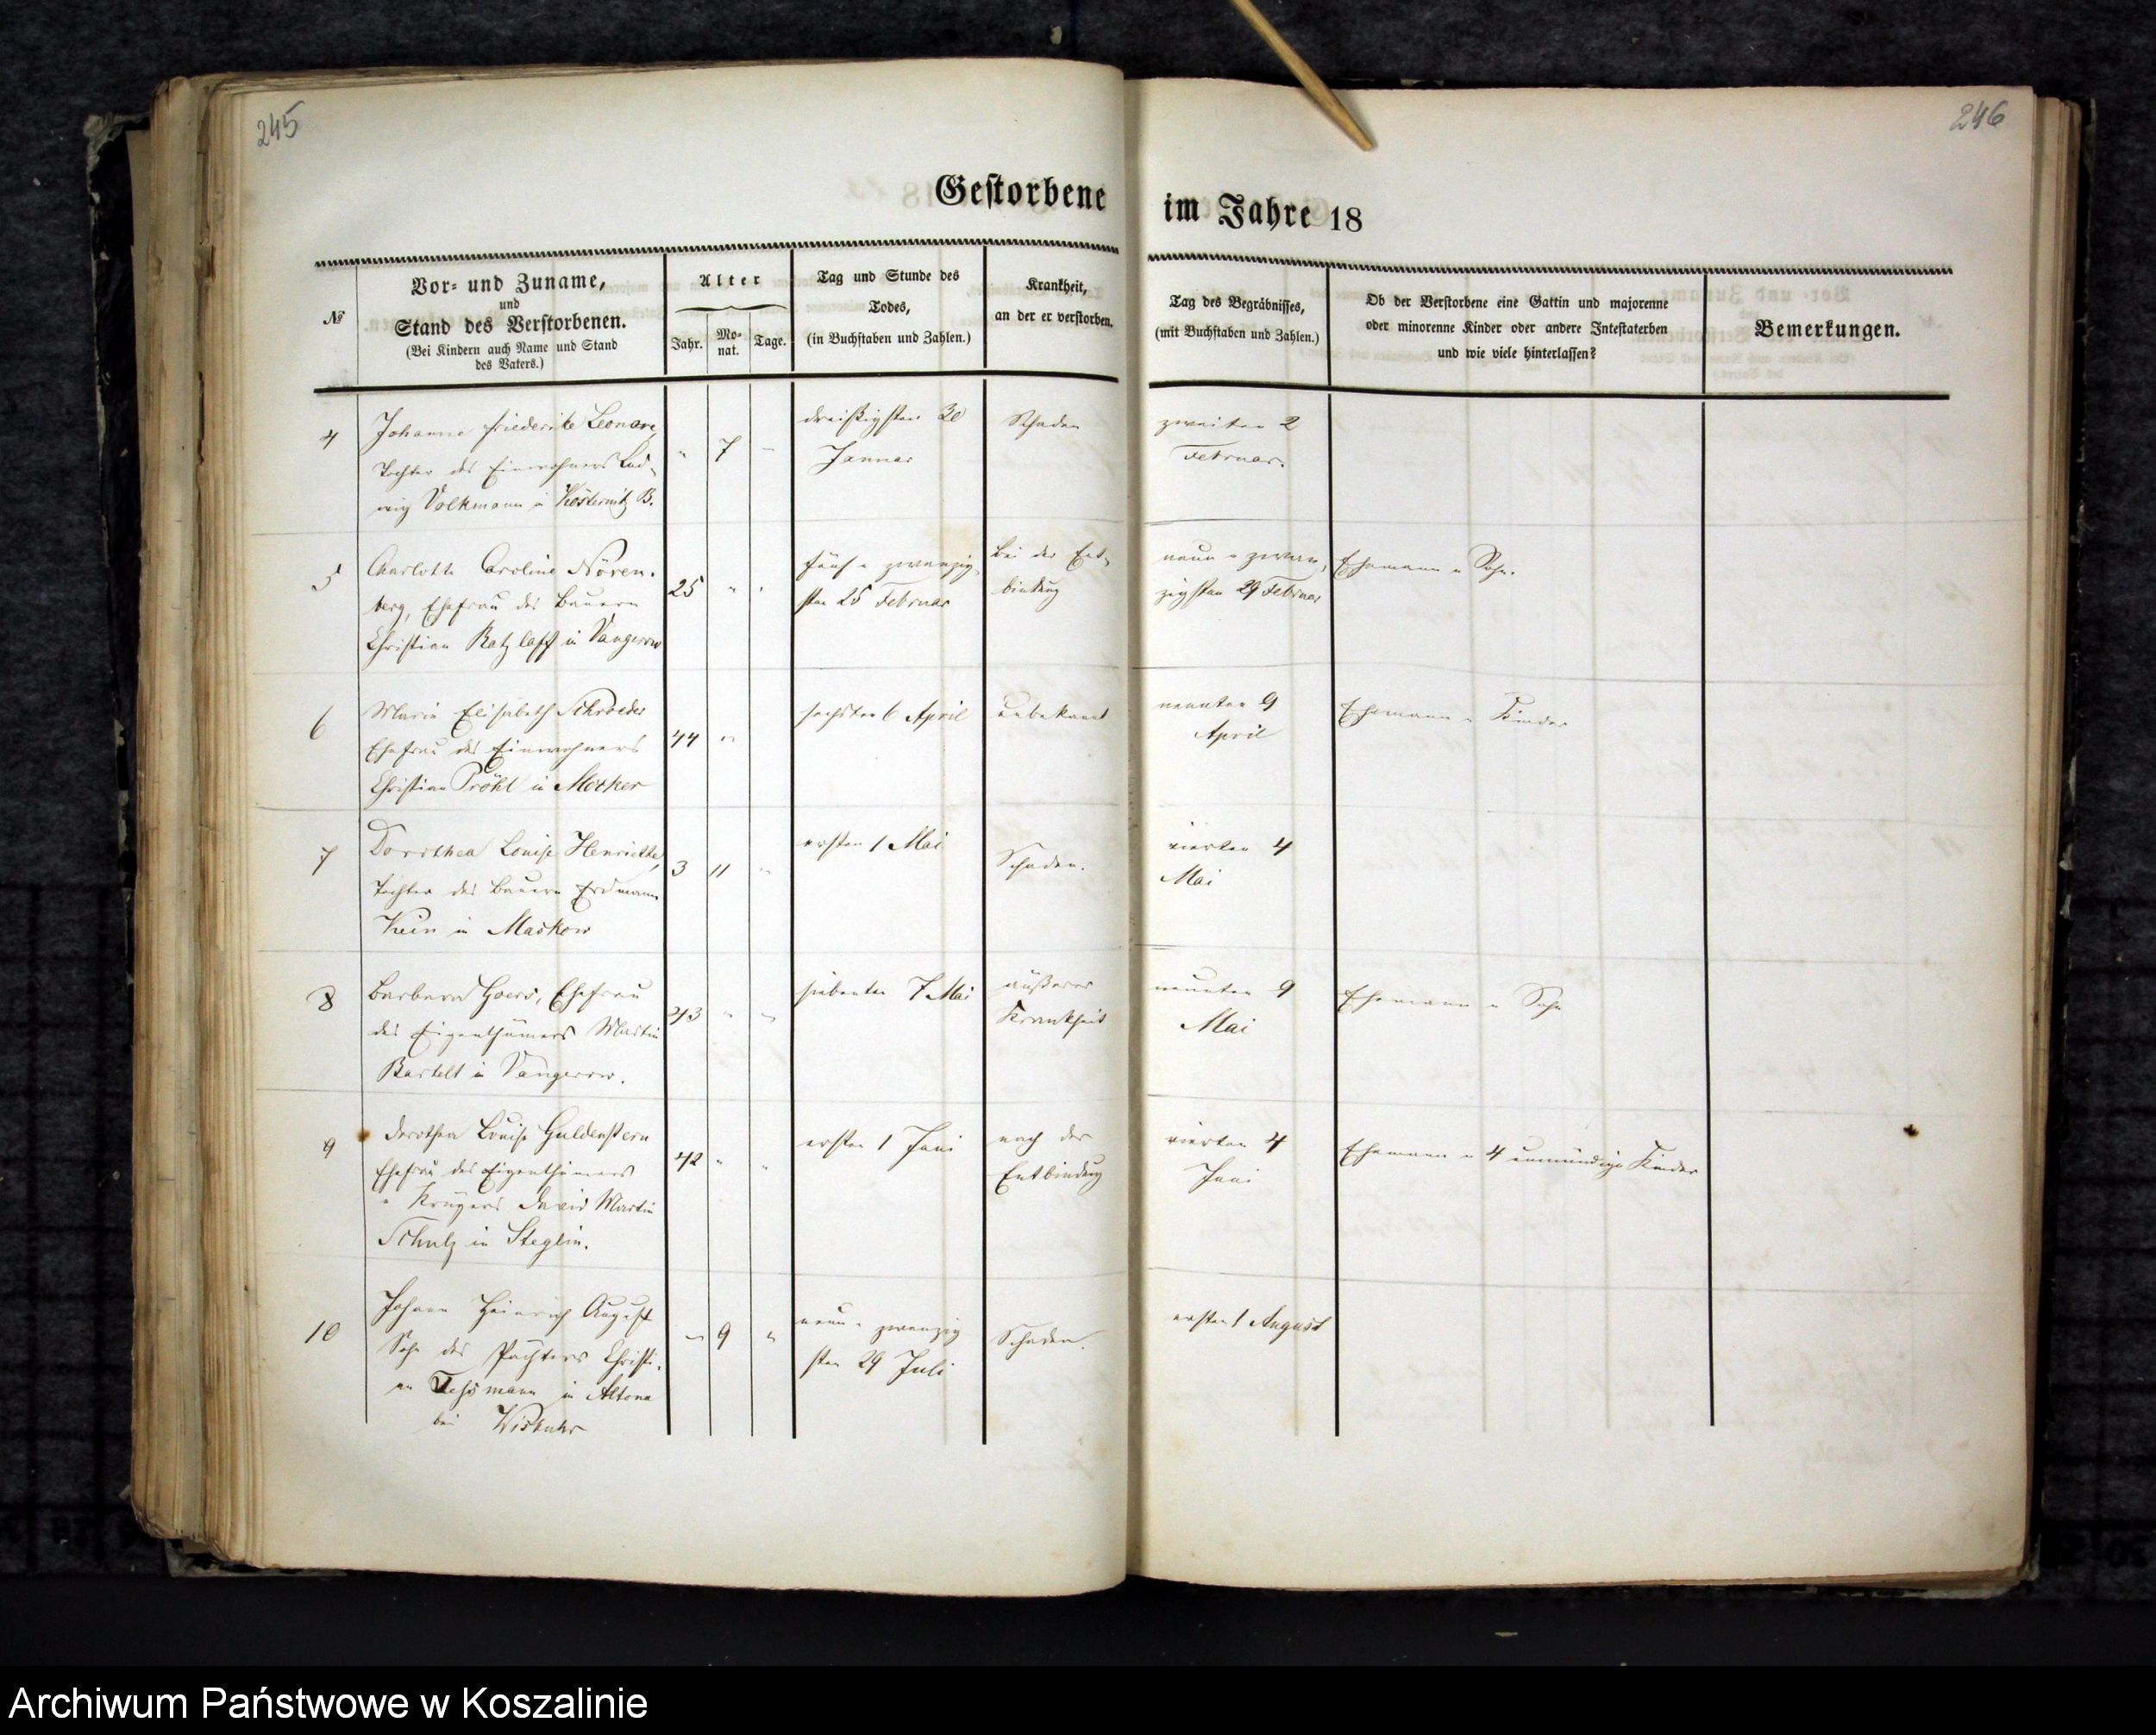 245
246
Gestorbene im Jahre 18
№
Vor- und Zuname,
und
Stand des Verstorbenen.
(Bei Kindern auch Name und Stand
des Vaters.)
Alter
Jahr.
Mo-
nat.
Tage.
Tag und Stunde des
Todes,
(in Buchstaben und Zahlen.)
Krankheit,
an der er verstorben.
Tag des Begräbnisses,
(mit Buchstaben und Zahlen.)
Ob der Verstorbene eine Gattin und majorenne
oder minorenne Kinder oder andere Intestaterben
und wie viele hinterlassen?
Bemerkungen.
4
Johanne Friederike Leonore,
Tochter des Einwohners Lud-
wig Volkmann in Kösternitz B.
" 7 -
dreißigsten 30
Januar
Schaden
zweiten 2
Februar.
5
Charlotte Caroline Nören-
berg, Ehefrau des Bauern
Christian Ratzlaff in Vangerow
25 " "
fünf u zwanzig-
sten 25 Februar
bei der Ent-
bindung
neun u zwan-
zigsten 29 Februar
Ehemann u Sohn.
6
Marie Elisabeth Schroeder
Ehefrau des Einwohners
Christian Pröhl in Mocker
44 "
sechsten 6 April
unbekannt
neunten 9
April
Ehemann u Kinder
7
Dorothea Louise Henriette,
Tochter des Bauern Erdmann
in Maskow
3 11 "
ersten 1 Mai
Schaden.
vierten 4
Mai
8
Barbara Goers, Ehefrau
des Eigenthümers Martin
Bartelt in Vangerow.
43 " "
siebenten 7 Mai
äußerer
Krankheit
neunten 9
Mai
Ehemann u Sohn
9
Dorothea Louise Guldenstern
Ehefrau des Eigenthümers
u Krügers David Martin
Schulz in Steglin.
42 " "
ersten 1 Juni
nach der
Entbindung
vierten 4
Juni
Ehemann u 4 unmündige Kinder
10
Johann Heinrich August
Sohn des Pächters Christi-
an Tessmann in Altona
bei Wisbuhr
" 9 "
neun u zwanzig
sten 29 Juli
Schaden.
ersten 1 August
Archiwum Państwowe w Koszalinie